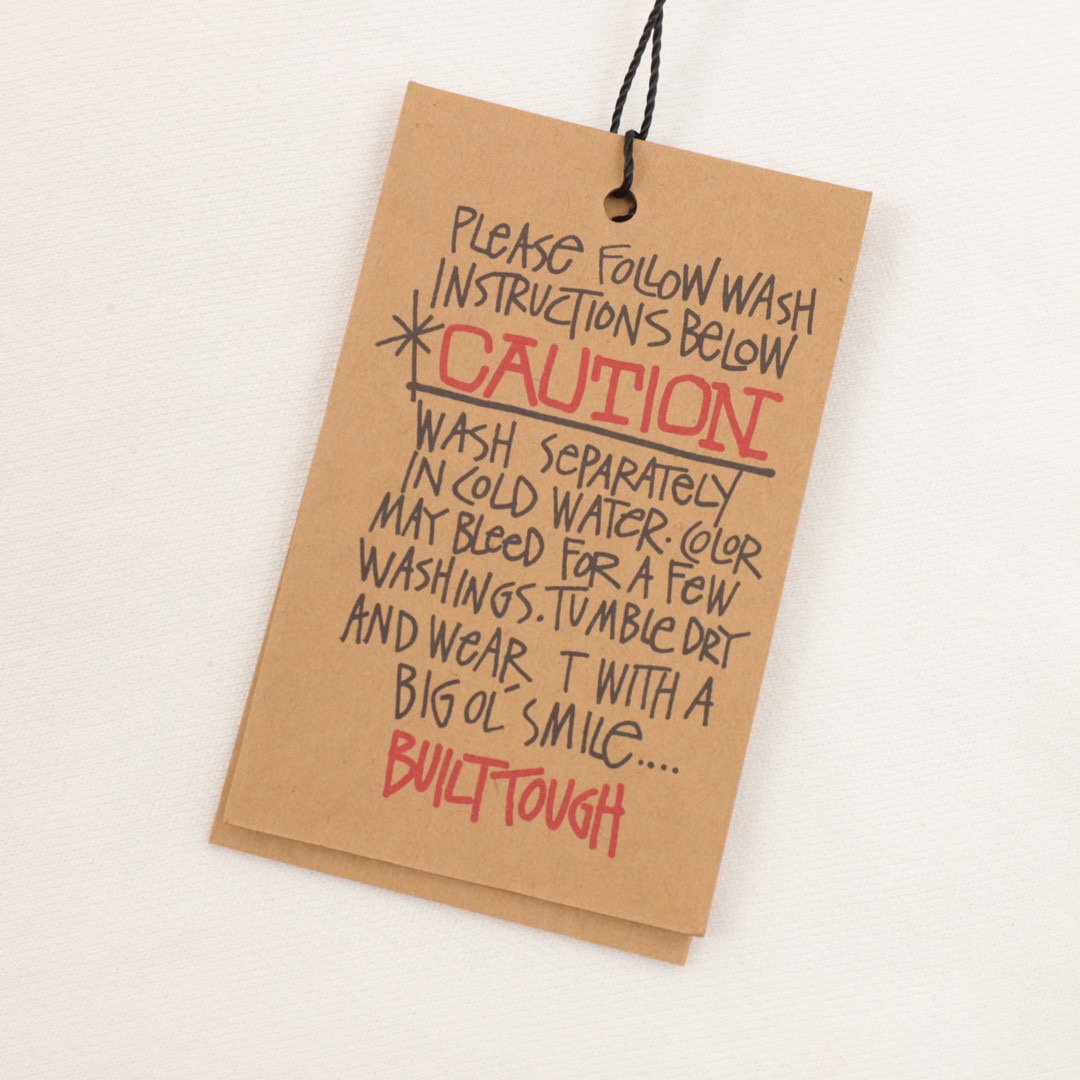 PLEASE FOLLOW WASH
INSTRUCTIONS BELOW
*CAUTION
WASH SEPARATELY
IN COLD WATER. COLOR
MAY BLEED FOR A FEW
WASHINGS. TUMBLE DRY
AND WEAR T WITH A
BIG OL' SMILE....
BUILT TOUGH